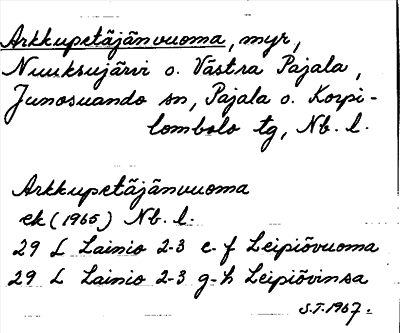 Arkkupetäjänvuoma, myr,
Nuuksujärvi o. Västra Pajala,
Junosuando sn, Pajala o. Korpi-
lombolo tg, Nb. l.
Arkkupetäjänvuoma
ek (1965) Nb. l.
29 L Lainio 2-3 e-f Leipiövuoma
29 L Lainio 2-3 g-h Leipiövinsa
S.T. 1967.